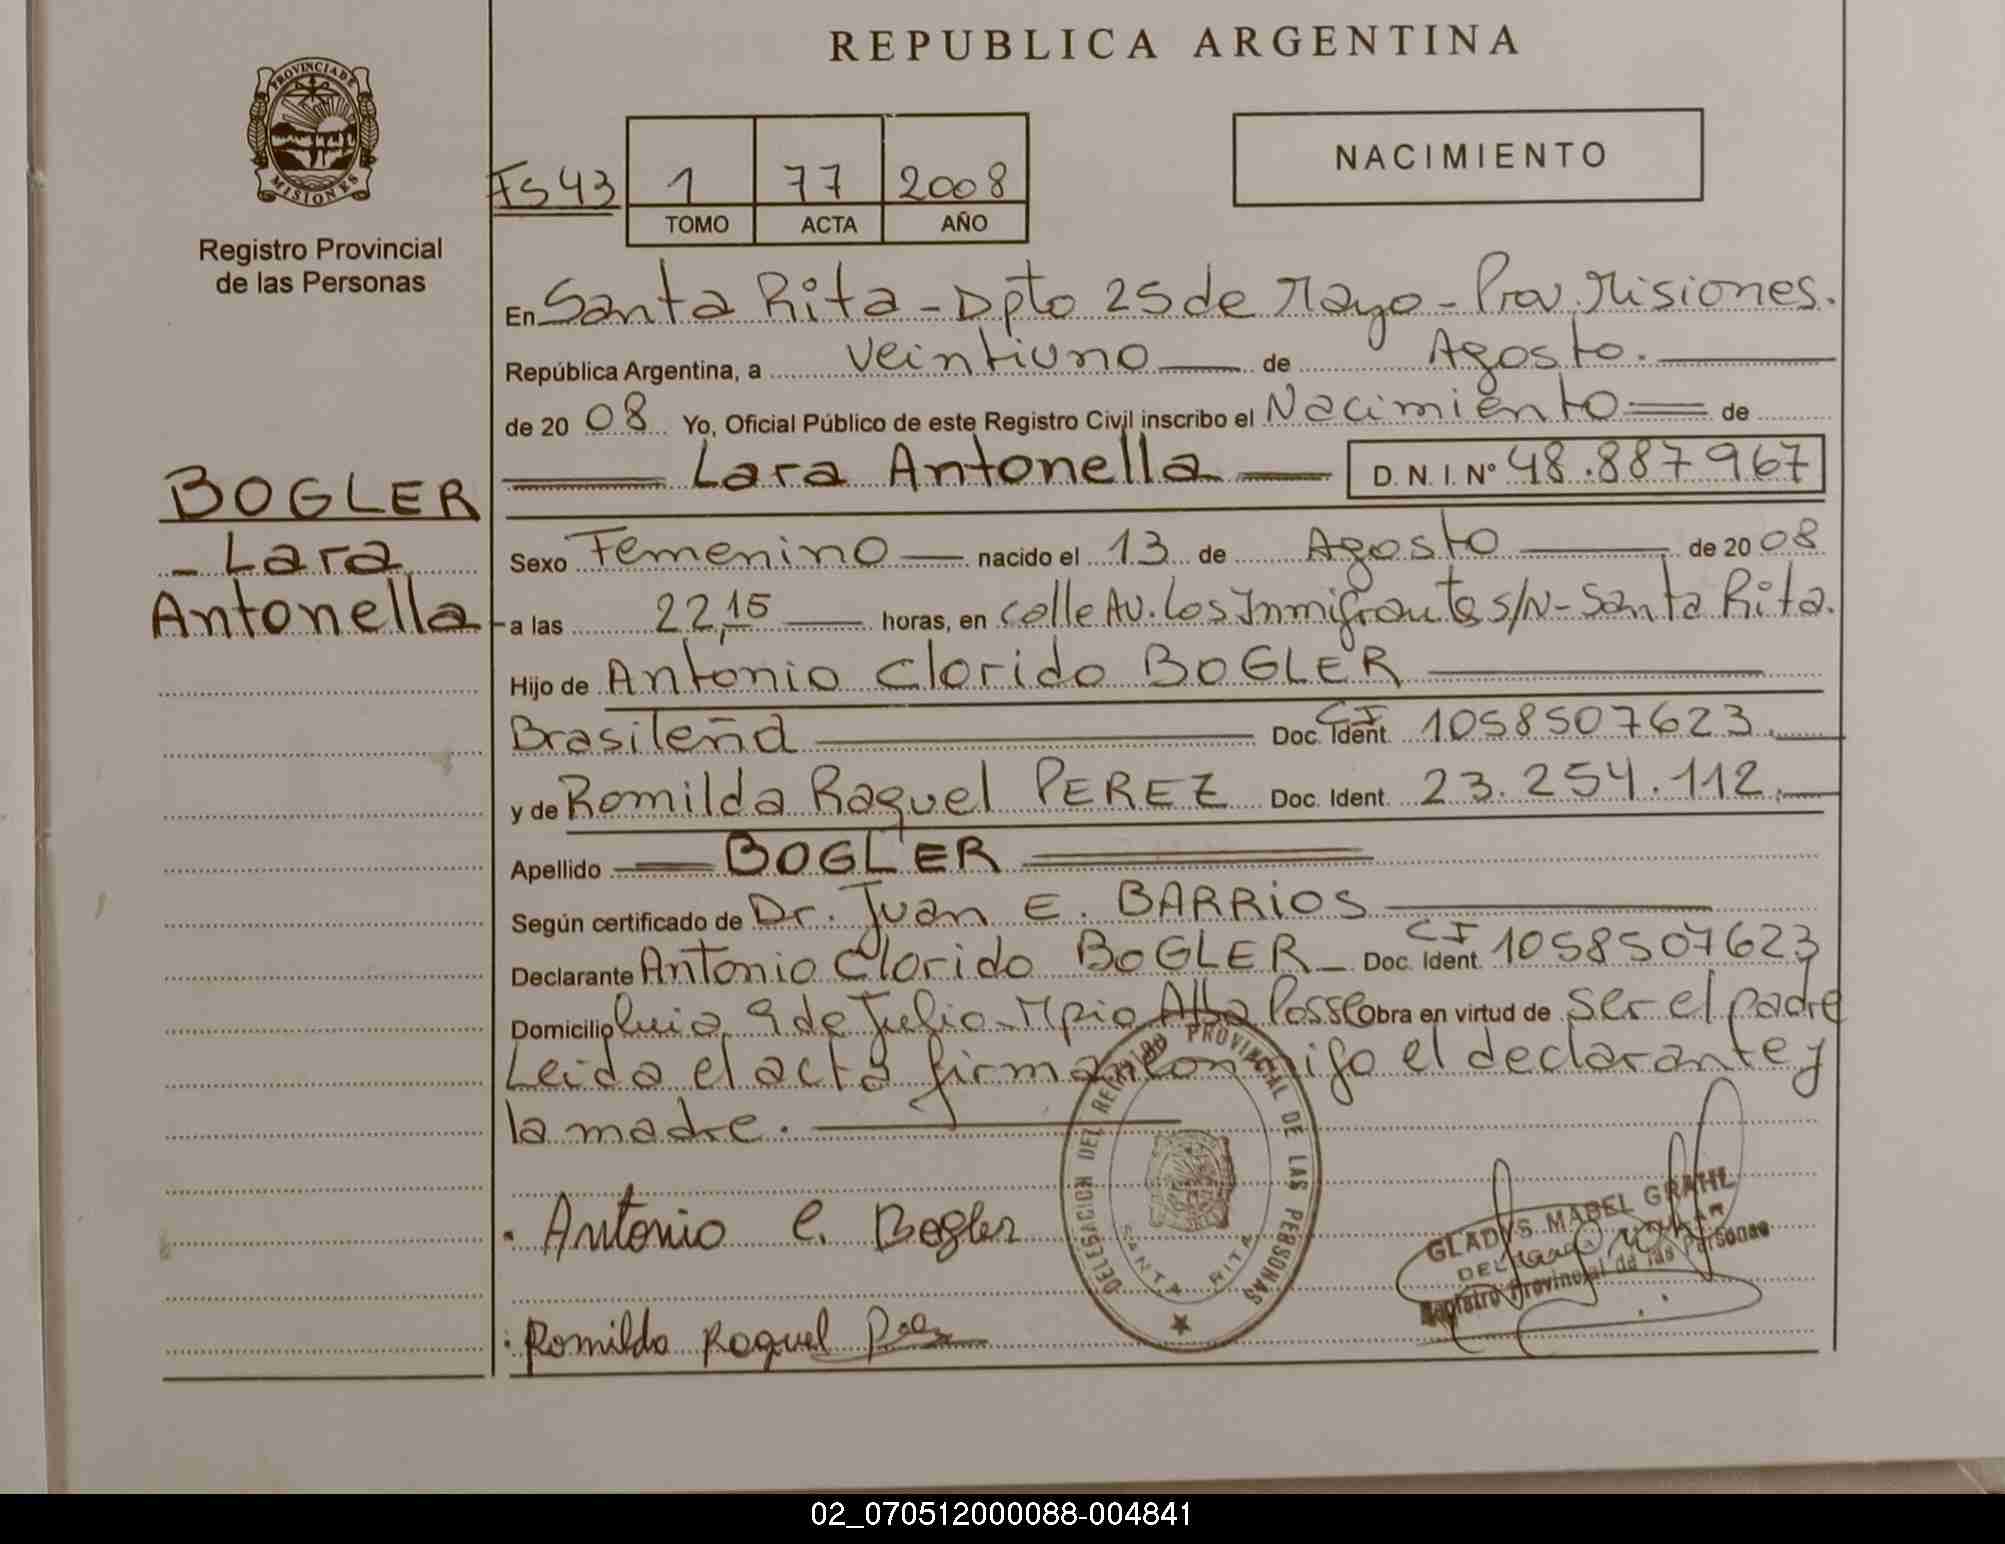 REPUBLICA ARGENTINA
PROVINCIA DE MISIONES
Registro Provincial
de las Personas
NACIMIENTO
Fs 43 1 77 2008
TOMO ACTA AÑO
En Santa Rita - Dpto 25 de Mayo - Prov. Misiones.
República Argentina, a veintiuno de Agosto.
de 20 08 Yo, Oficial Público de este Registro Civil inscribo el Nacimiento de
BOGLER
- Lara
Antonella
Lara Antonella D.N.I. Nº 48.887967
Sexo Femenino nacido el 13 de Agosto de 20 08
a las 22,15 horas, en calle Av. Los Inmigrantes S/N - Santa Rita.
Hijo de Antonio Clorido BOGLER
Brasileña Doc. Ident. CI 1058507623.
y de Romilda Raquel PEREZ Doc. Ident. 23.254.112.
Apellido BOGLER
Según certificado de Dr. Juan E. BARRIOS
Declarante Antonio Clorido BOGLER - Doc. Ident. CI 1058507623
Domicilio 9 de Julio - Mpio Alba Posse Obra en virtud de ser el padre
Leida el acta firman conmigo el declarante y
la madre.
DELEGACION DEL REGISTRO PROVINCIAL DE LAS PERSONAS
SANTA RITA
Antonio C. Bogler
Romilda Raquel
GLADYS MABEL GRAHL
Registro Provincial de las Personas
02_070512000088-004841